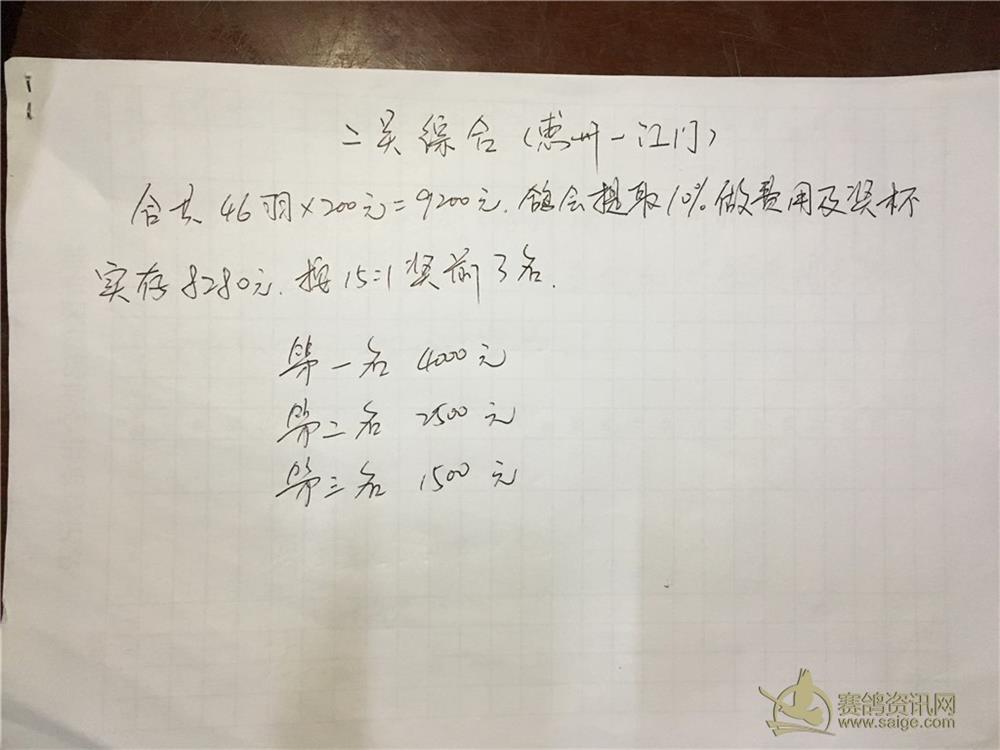 二关综合(惠州—江门)
合共46羽×200元=9200元.鸽会提取10%做费用及奖杯
实存8280元.按15:1奖前3名.
第一名 4000元
第二名 2500元
第三名 1500元
赛鸽资讯网
www.saige.com